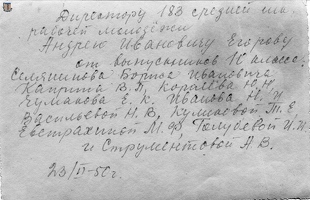 Директору 183 средней шк.
рабочей молодёжи
Андрею Ивановичу Егорову
от выпускников 10 класса:
Селезнева Бориса Ивановича
Каприна В.П, Королёва Н.Н.
Чумакова Е. К. Иванова Н. И
Васильевой Н. В, Климовой Т. Е
Евстрахиной М. Ф, Голубевой И. Н.
и Струментовой А В.
23/II-50г.